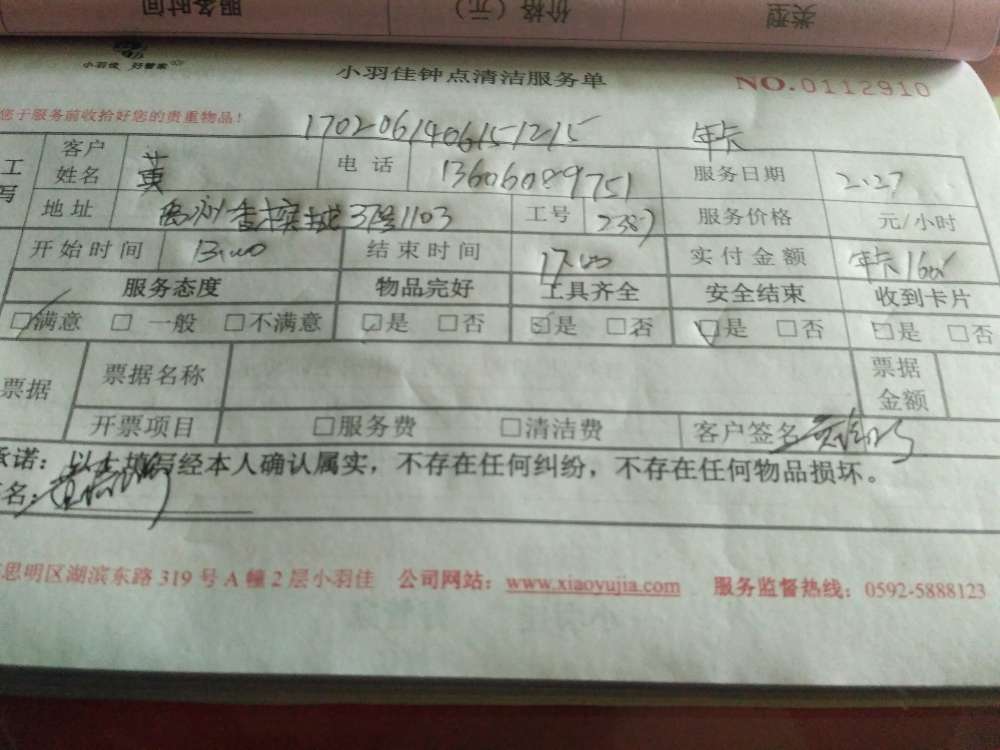 类型 价格（元） 服务时间
小羽佳 好管家
小羽佳钟点清洁服务单 NO.0112910
您于服务前收拾好您的贵重物品！
1702061406151215 年卡
工 客户姓名 黄 电话 13606089751 服务日期 2.27
写 地址 37号1103 工号 2387 服务价格 元/小时
开始时间 13:00 结束时间 17:00 实付金额 年卡160
服务态度 物品完好 工具齐全 安全结束 收到卡片
□满意 □一般 □不满意 □是 □否 □是 □否 □是 □否 □是 □否
票据 票据名称 票据金额
开票项目 □服务费 □清洁费 客户签名
承诺：以上填写经本人确认属实，不存在任何纠纷，不存在任何物品损坏。
名：
思明区湖滨东路319号A幢2层小羽佳 公司网站：www.xiaoyujia.com 服务监督热线：0592-5888123